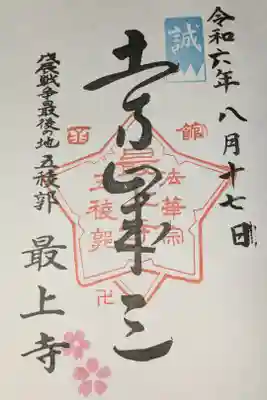 令和六年八月十七日
誠
土方歳三
戊辰戦争最後の地 五稜郭
最上寺
函館
法華宗
五稜郭
卍